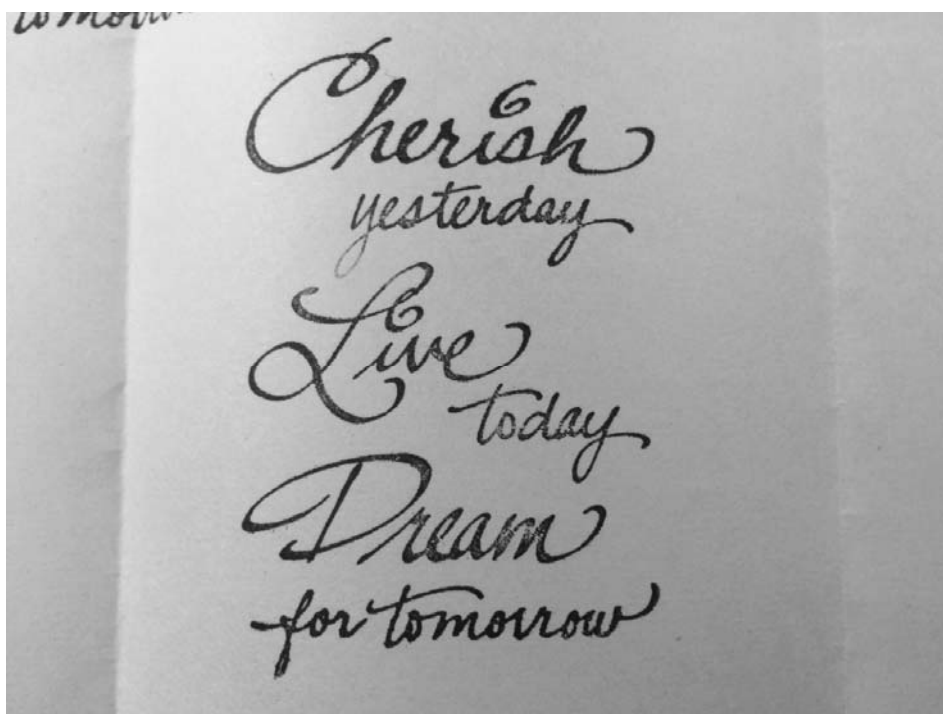 tomorrow
Cherish
yesterday
Live
today
Dream
for tomorrow